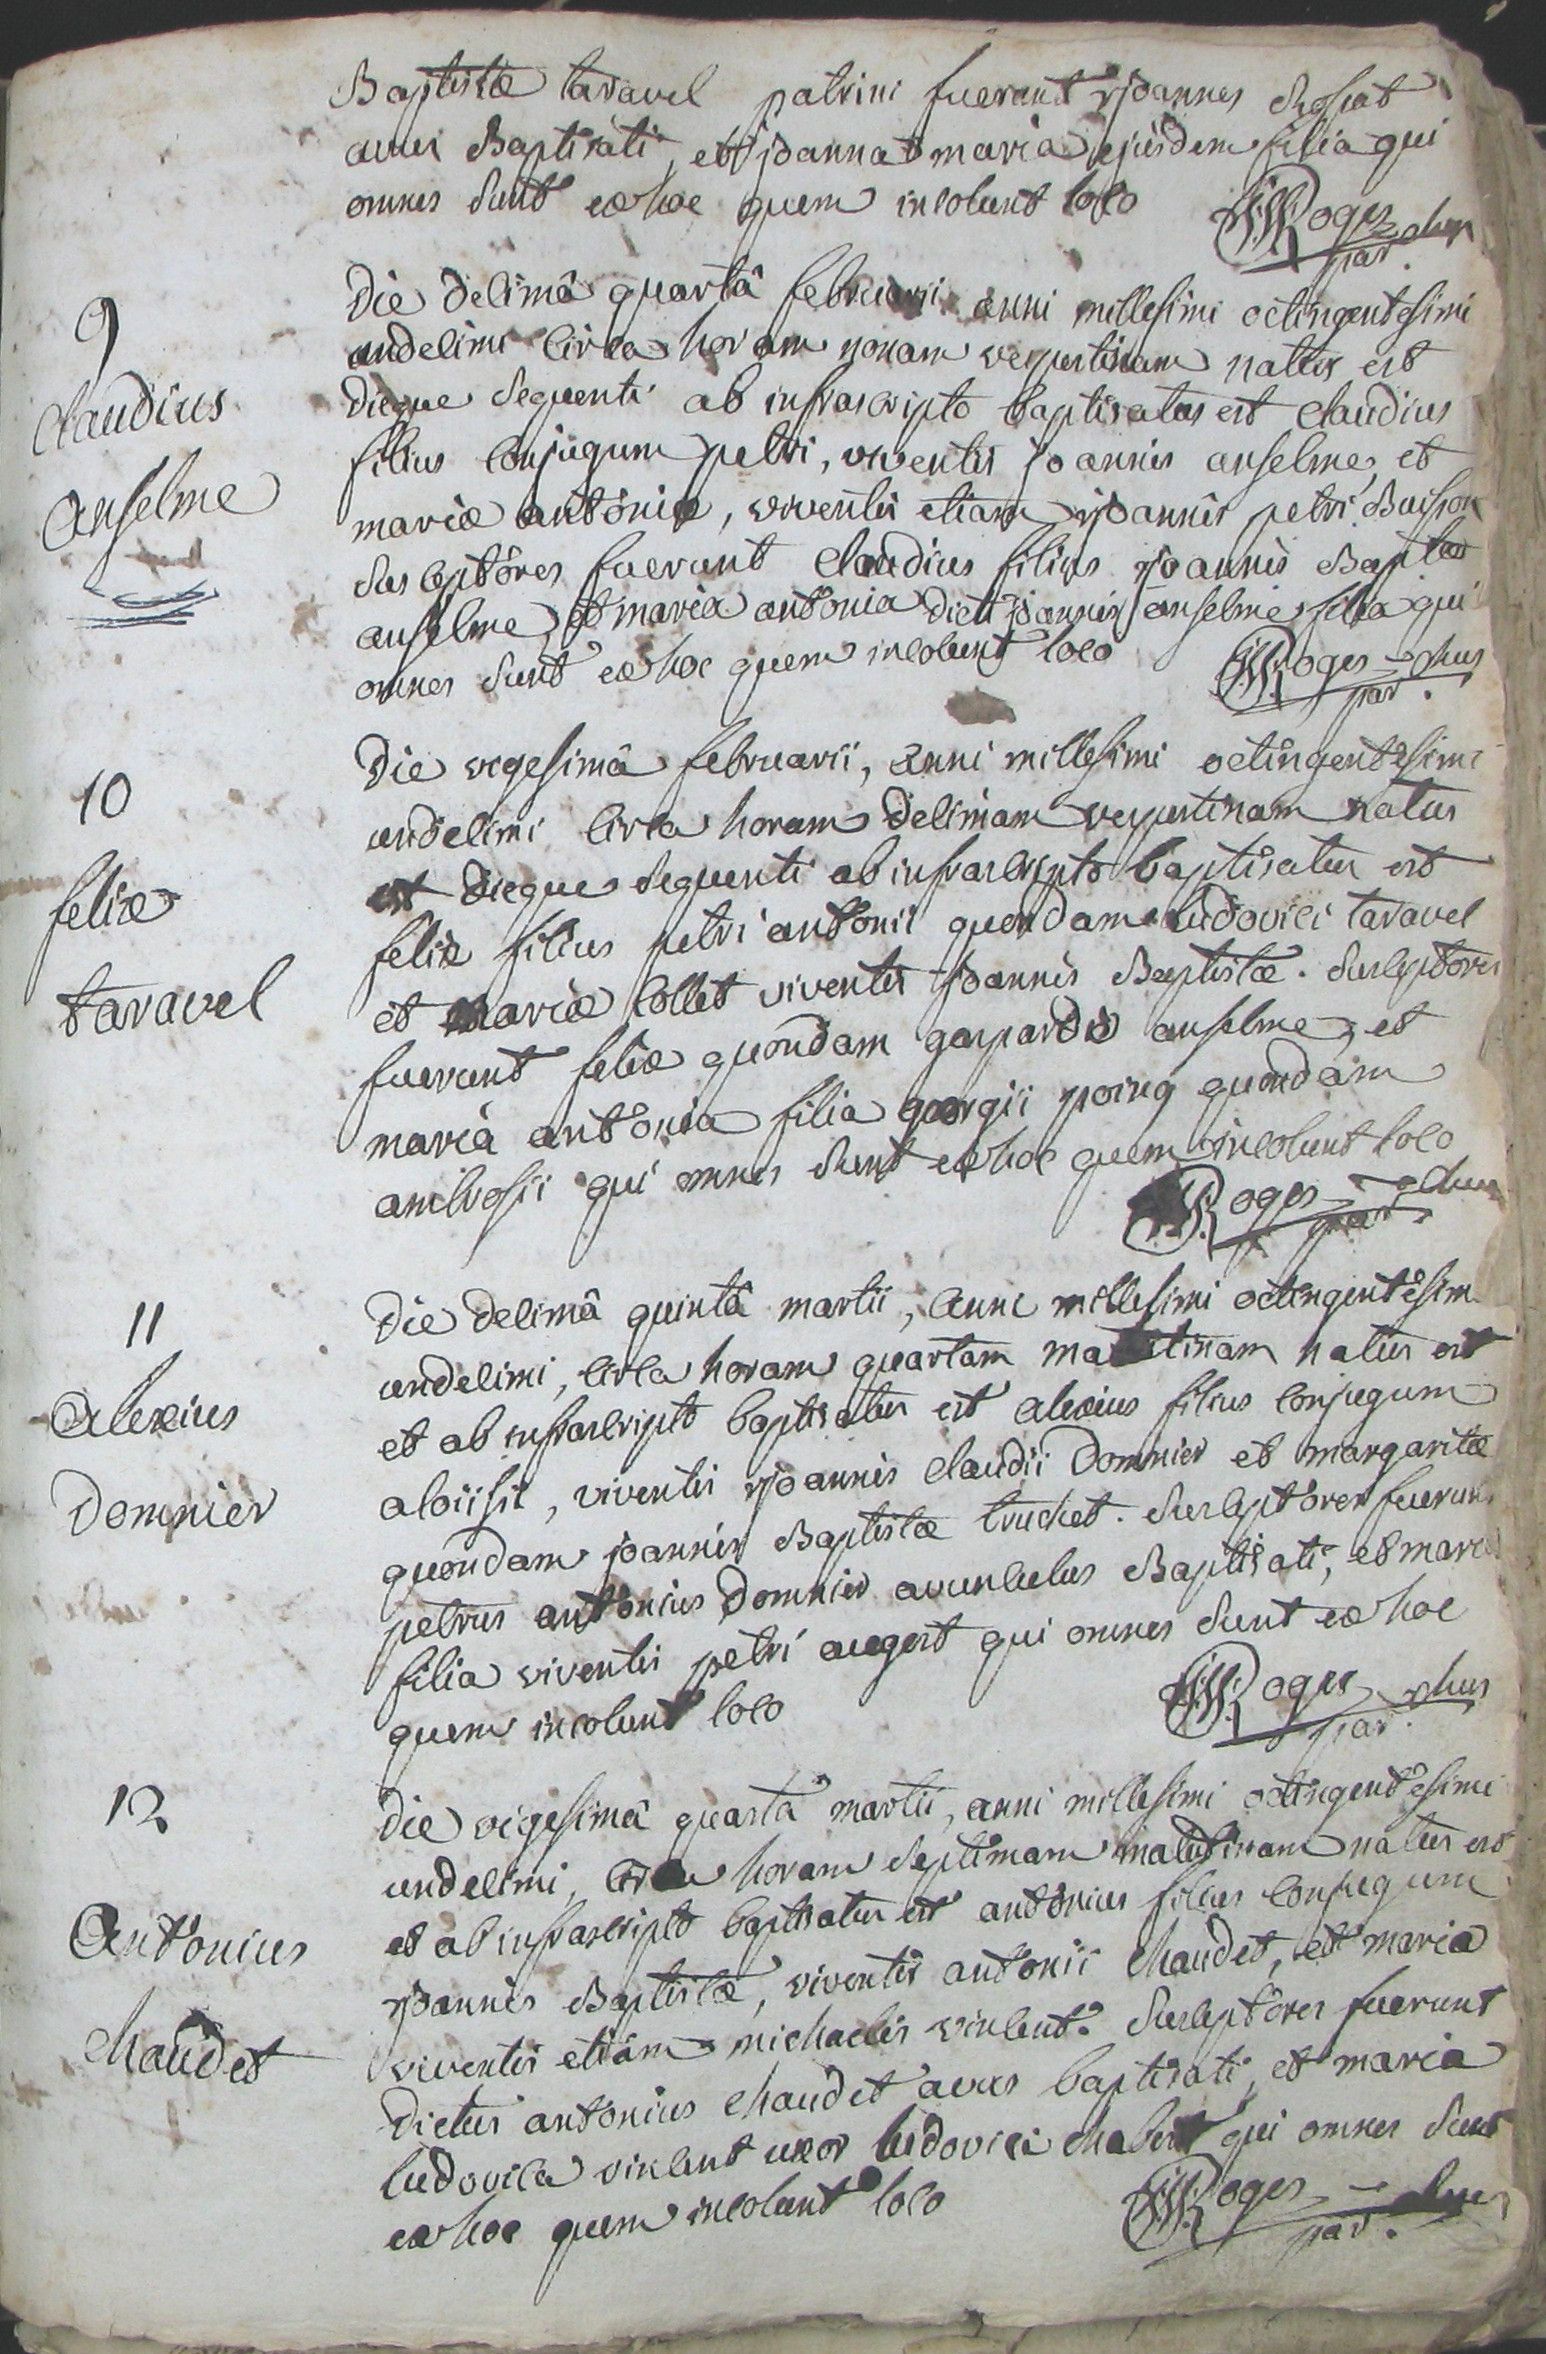 Baptistæ taravel patrini fuerunt joannes
avus Baptisati, et joanna maria ejusdem filia qui
omnes sunt ex hoc quem incolunt loco
Roges
par.
9
Claudius
Anselme
Die decimâ quartâ februarii anni millesimi octingentesimi
undecimi circa horam nonam vespertinam natus est
dieque sequenti ab infrascripto baptisatus est claudius
filius conjugum petri, viventis joannis anselme, et
mariæ antoniæ, viventis etiam joannis petri Buisson
susceptores fuerunt Claudius filius joannis Baptæ
anselme, et maria antonia dicti joannis anselme filia qui
omnes sunt ex hoc quem incolunt loco
Roges
par.
10
felix
taravel
Die vigesimâ februarii, anni millesimi octingentesimi
undecimi circa horam decimam vespertinam natus
est dieque sequenti ab infrascripto baptisatus est
felix filius petri antonii quondam ludovici taravel
et mariæ Collet viventis joannis Baptistæ. Susceptores
fuerunt felix quondam gaspardi anselme, et
maria antonia filia georgii poing quondam
ambrosii qui omnes sunt ex hoc quem incolunt loco
Roges
par.
11
Alexius
Domnier
Die decimâ quintâ martii, anni millesimi octingentesimi
undecimi, circa horam quartam matutinam natus est
et ab infrascripto baptisatus est alexius filius conjugum
aloiisii, viventis joannis Claudii Domnier et margaritæ
quondam joannis Baptistæ truchet. Susceptores fuerunt
petrus antonius Domnier avunculus Baptisati, et maria
filia viventis petri augert qui omnes sunt ex hoc
quem incolunt loco
Roges
par.
12
Antonius
Chaudet
Die vigesimâ quartâ martii, anni millesimi octingentesimi
undecimi, circa horam septimam matutinam natus est
et ab infrascripto baptisatus est antonius filius conjugum
joannis Baptistæ, viventis antonii Chaudet, et maria
viventis etiam michaelis vincent. Susceptores fuerunt
Dictus antonius Chaudet avus baptisati, et maria
ludovica vincent uxor ludovici Chabert qui omnes sunt
ex hoc quem incolunt loco
Roges
par.